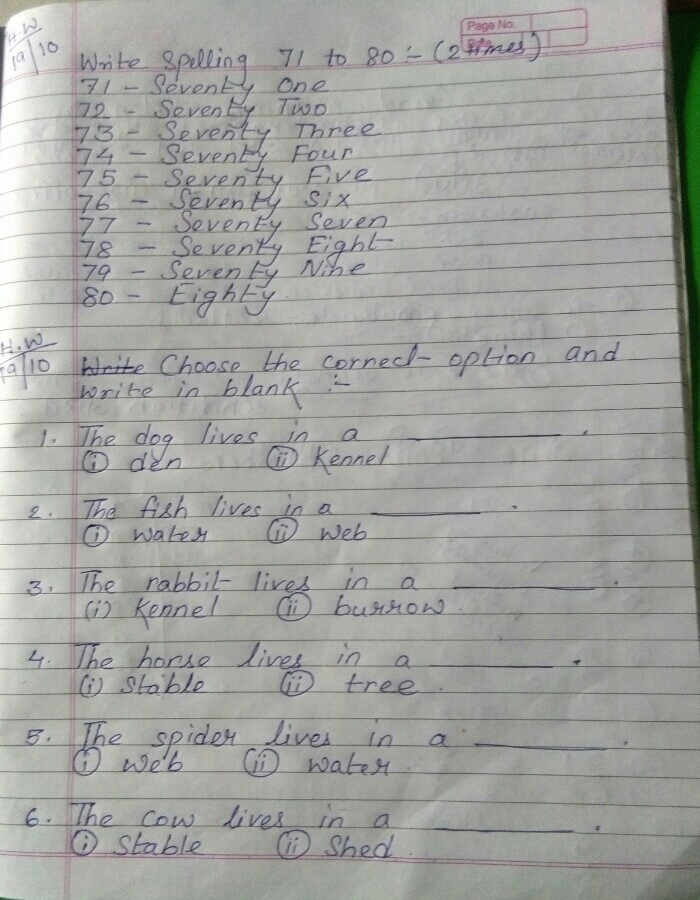 H.W
19/10
Page No.
Write Spelling 71 to 80 :- (2 times)
71 - Seventy One
72 - Seventy Two
73 - Seventy Three
74 - Seventy Four
75 - Seventy Five
76 - Seventy Six
77 - Seventy Seven
78 - Seventy Eight
79 - Seventy Nine
80 - Eighty
H.W
19/10
Write Choose the correct option and
write in blank :-
1. The dog lives in a ________ .
(i) den (ii) Kennel
2. The fish lives in a ________ .
(i) water (ii) web
3. The rabbit lives in a ________ .
(i) Kennel (ii) burrow.
4. The horse lives in a ________ .
(i) Stable (ii) tree.
5. The spider lives in a ________ .
(i) web (ii) water.
6. The cow lives in a ________ .
(i) Stable (ii) Shed.